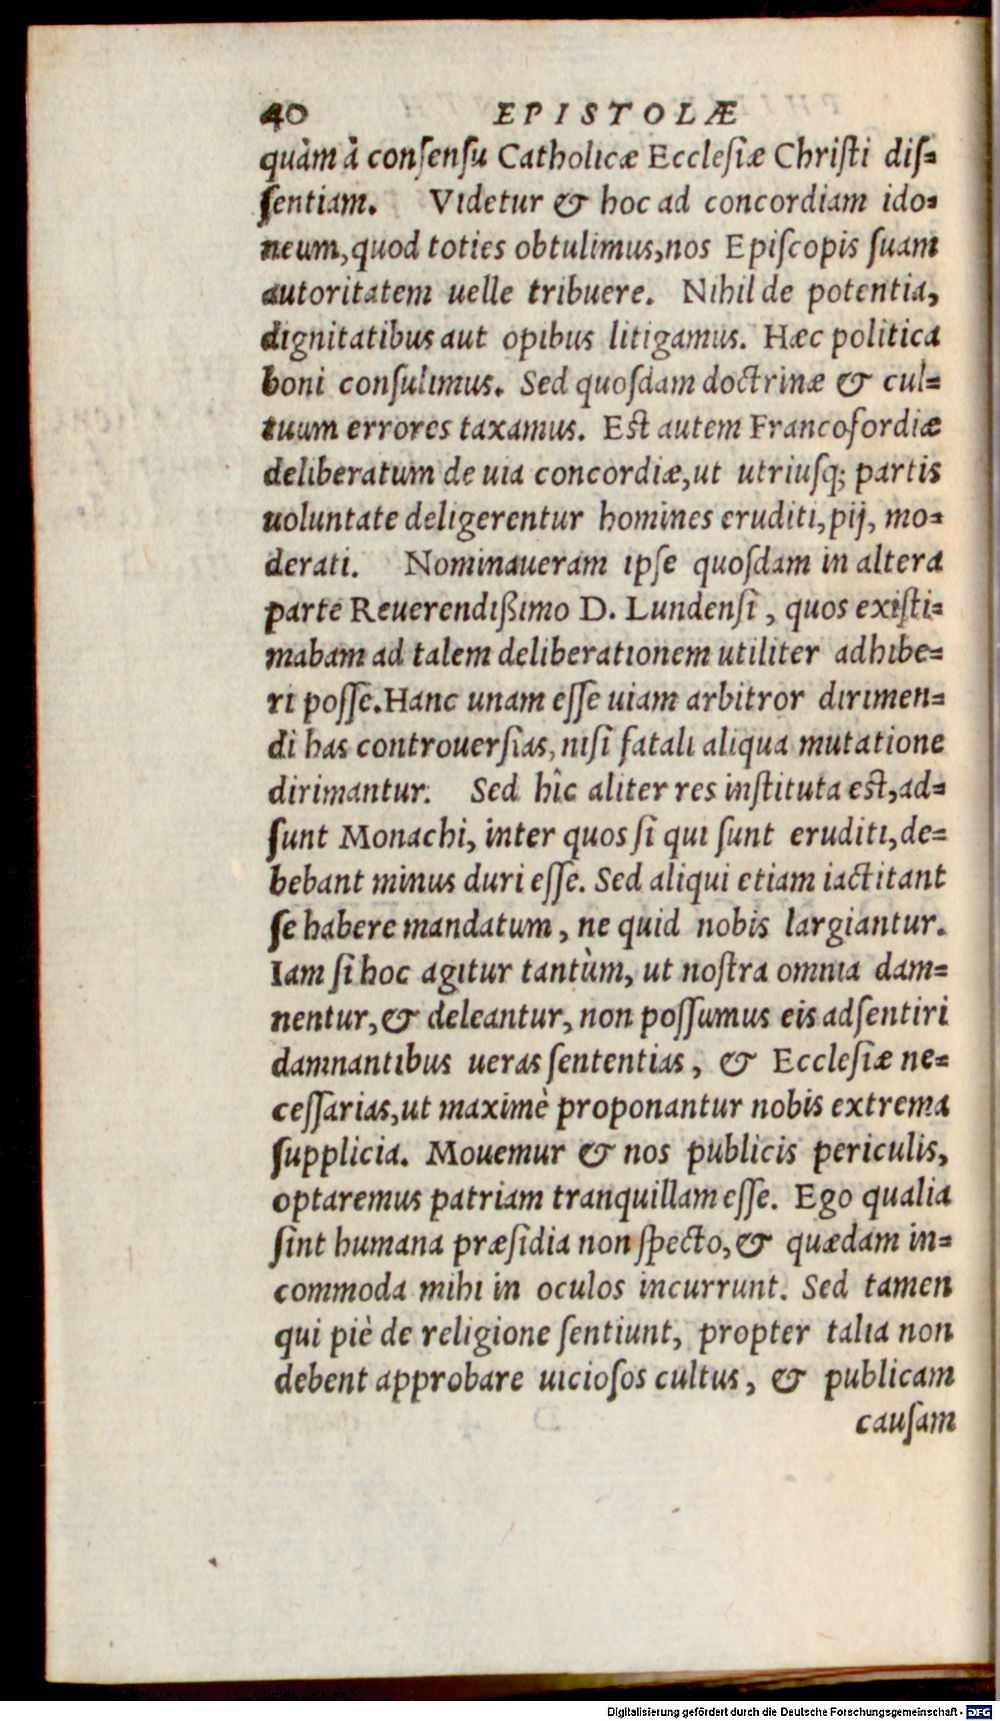 40 EPISTOLÆ
quàm à conſenſu Catholicæ Eccleſiæ Chriſti diſ=
ſentiam. Videtur & hoc ad concordiam ido=
neum, quod toties obtulimus, nos Epiſcopis ſuam
autoritatem uelle tribuere. Nihil de potentia,
dignitatibus aut opibus litigamus. Hæc politica
boni conſulimus. Sed quoſdam doctrinæ & cul=
tuum errores taxamus. Eſt autem Francofordiæ
deliberatum de uia concordiæ, ut utriuſq; partis
uoluntate deligerentur homines eruditi, pij, mo=
derati. Nominaueram ipſe quoſdam in altera
parte Reuerendißimo D. Lundenſi, quos exiſti=
mabam ad talem deliberationem utiliter adhibe=
ri poſſe. Hanc unam eſſe uiam arbitror dirimen=
di has controuerſias, niſi fatali aliqua mutatione
dirimantur. Sed hîc aliter res inſtituta eſt, ad=
ſunt Monachi, inter quos ſi qui ſunt eruditi, de=
bebant minus duri eſſe. Sed aliqui etiam iactitant
ſe habere mandatum, ne quid nobis largiantur.
Iam ſi hoc agitur tantùm, ut noſtra omnia dam=
nentur, & deleantur, non poſſumus eis adſentiri
damnantibus ueras ſententias, & Eccleſiæ ne=
ceſſarias, ut maximè proponantur nobis extrema
ſupplicia. Mouemur & nos publicis periculis,
optaremus patriam tranquillam eſſe. Ego qualia
ſint humana præſidia non ſpecto, & quædam in=
commoda mihi in oculos incurrunt. Sed tamen
qui piè de religione ſentiunt, propter talia non
debent approbare uicioſos cultus, & publicam
cauſam
Digitalisierung gefördert durch die Deutsche Forschungsgemeinschaft - DFG